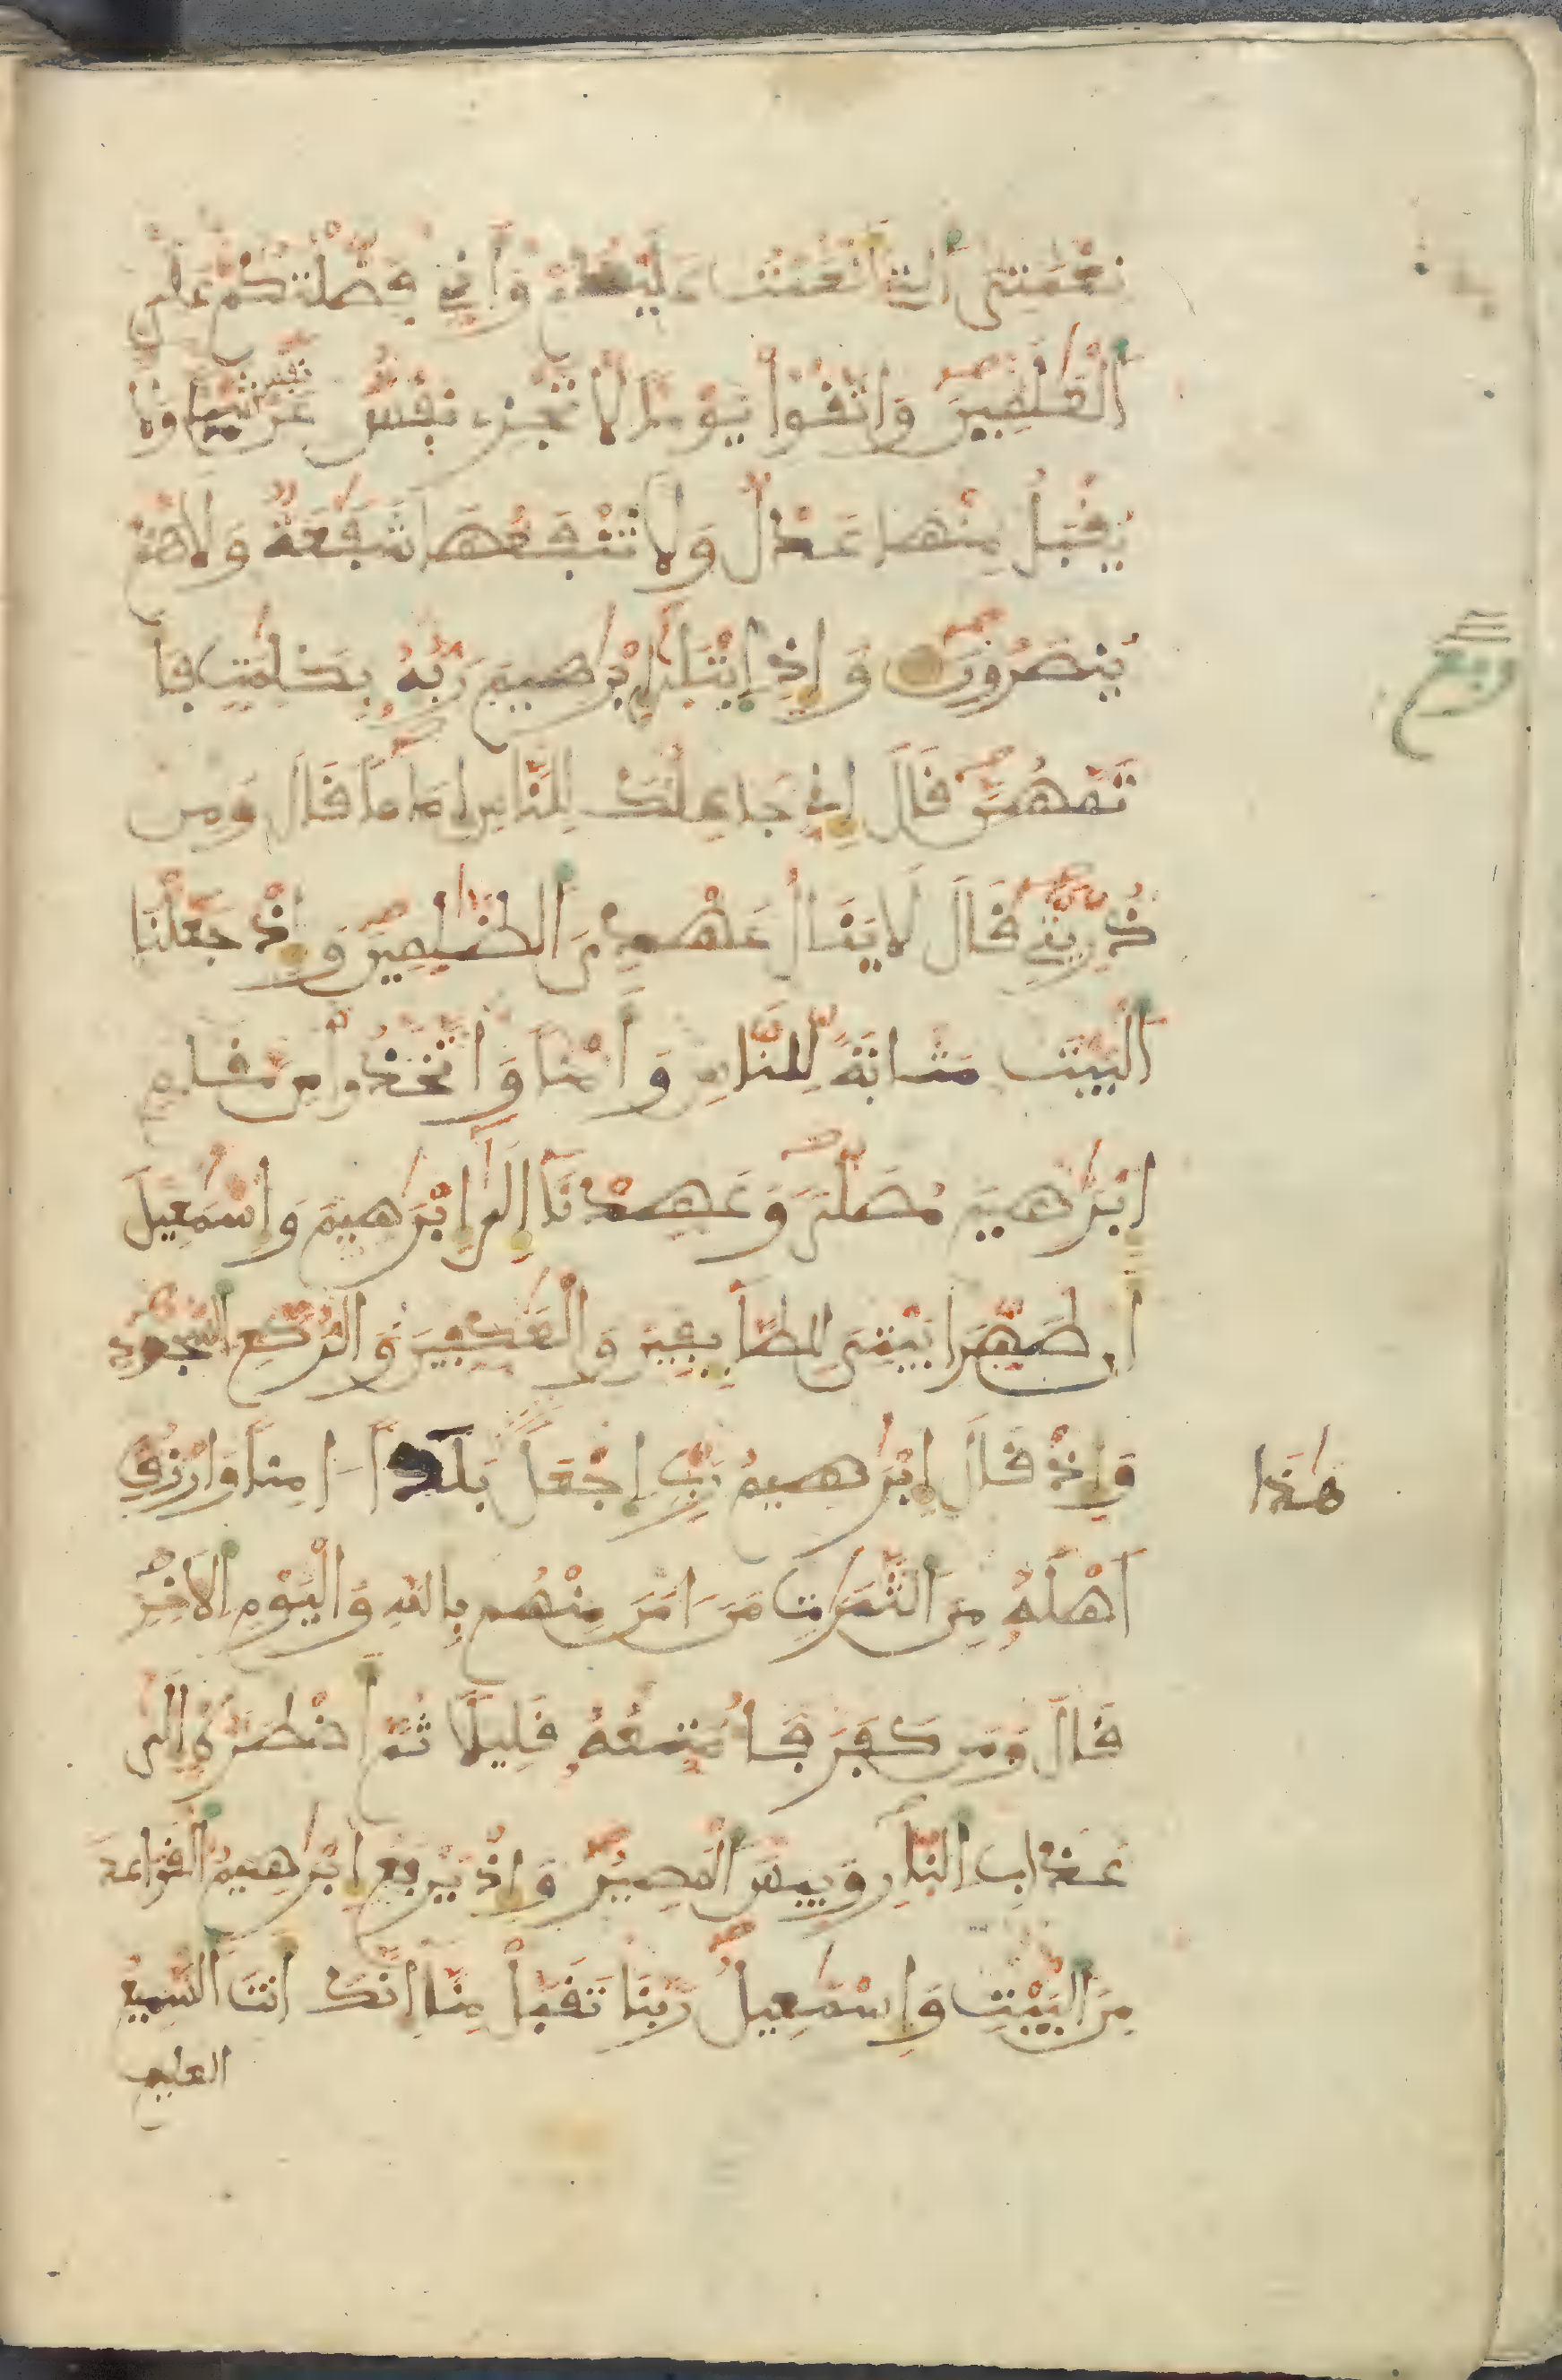 نِعْمَتِيَ اَلتِے أَنْعَمْتُ عَلَيْكُمْ وَأَنِّے فَضَّلْتُكُمْ عَلَى
اَلْعَٰلَمِينَ وَاتَّقُوا يَوْماً لَّا تَجْزِے نَفْسٌ عَن نَّفْسٍ شَيْئاً وَلَا
يُقْبَلُ مِنْهَا عَدْلٌ وَلَا تَنفَعُهَا شَفَٰعَةٌ وَلَا هُمْ
يُنصَرُونَ وَإِذِ اِبْتَلَىٰ إِبْرَٰهِيمَ رَبُّهُ بِكَلِمَٰتٍ فَأَ
تَمَّهُنَّ قَالَ إِنِّے جَاعِلُكَ لِلنَّاسِ إِمَاماً قَالَ وَمِن
ذُرِّيَّتِے قَالَ لَا يَنَالُ عَهْدِيَ اَلظَّٰلِمِينَ وَإِذْ جَعَلْنَا
اَلْبَيْتَ مَثَابَةً لِّلنَّاسِ وَأَمْناً وَاتَّخَذُوا مِن مَّقَامِ
إِبْرَٰهِيمَ مُصَلّىً وَعَهِدْنَا إِلَىٰ إِبْرَٰهِيمَ وَإِسْمَٰعِيلَ
أَن طَهِّرَا بَيْتِيَ لِلطَّآئِفِينَ وَالْعَٰكِفِينَ وَالرُّكَّعِ اِلسُّجُودِ
وَإِذْ قَالَ إِبْرَٰهِيمُ رَبِّ اِجْعَلْ بَلَداً اٰمِناً وَارْزُقَ
هَٰذَا
اَهْلَهُ مِنَ اَلثَّمَرَٰتِ مَنَ اٰمَنَ مِنْهُم بِاللهِ وَالْيَوْمِ اِلَاخِرِ
قَالَ وَمَن كَفَرَ فَأُمَتِّعُهُ قَلِيلًا ثُمَّ أَضْطَرُّهُ إِلَىٰ
عَذَابِ اِلنَّارِ وَبِيسَ اَلْمَصِيرُ وَإِذْ يَرْفَعُ إِبْرَٰهِيمُ اَلْقَوَاعِدَ
مِنَ اَلْبَيْتِ وَإِسْمَٰعِيلُ رَبَّنَا تَقَبَّلْ مِنَّا إِنَّكَ أَنتَ اَلسَّمِيعُ
العليم
ربع